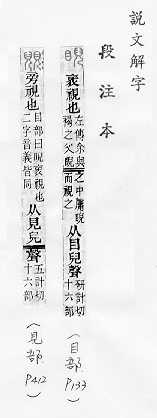 說文解字
段注本
睨
衺視也
左傳余與
褐之父睨
之中庸睨
而視之
从目兒聲
研計切
十六部
(目部 P133)
覞
旁視也
目部曰睨衺視也
二字音義皆同
从見兒聲
五計切
十六部
(見部 P412)